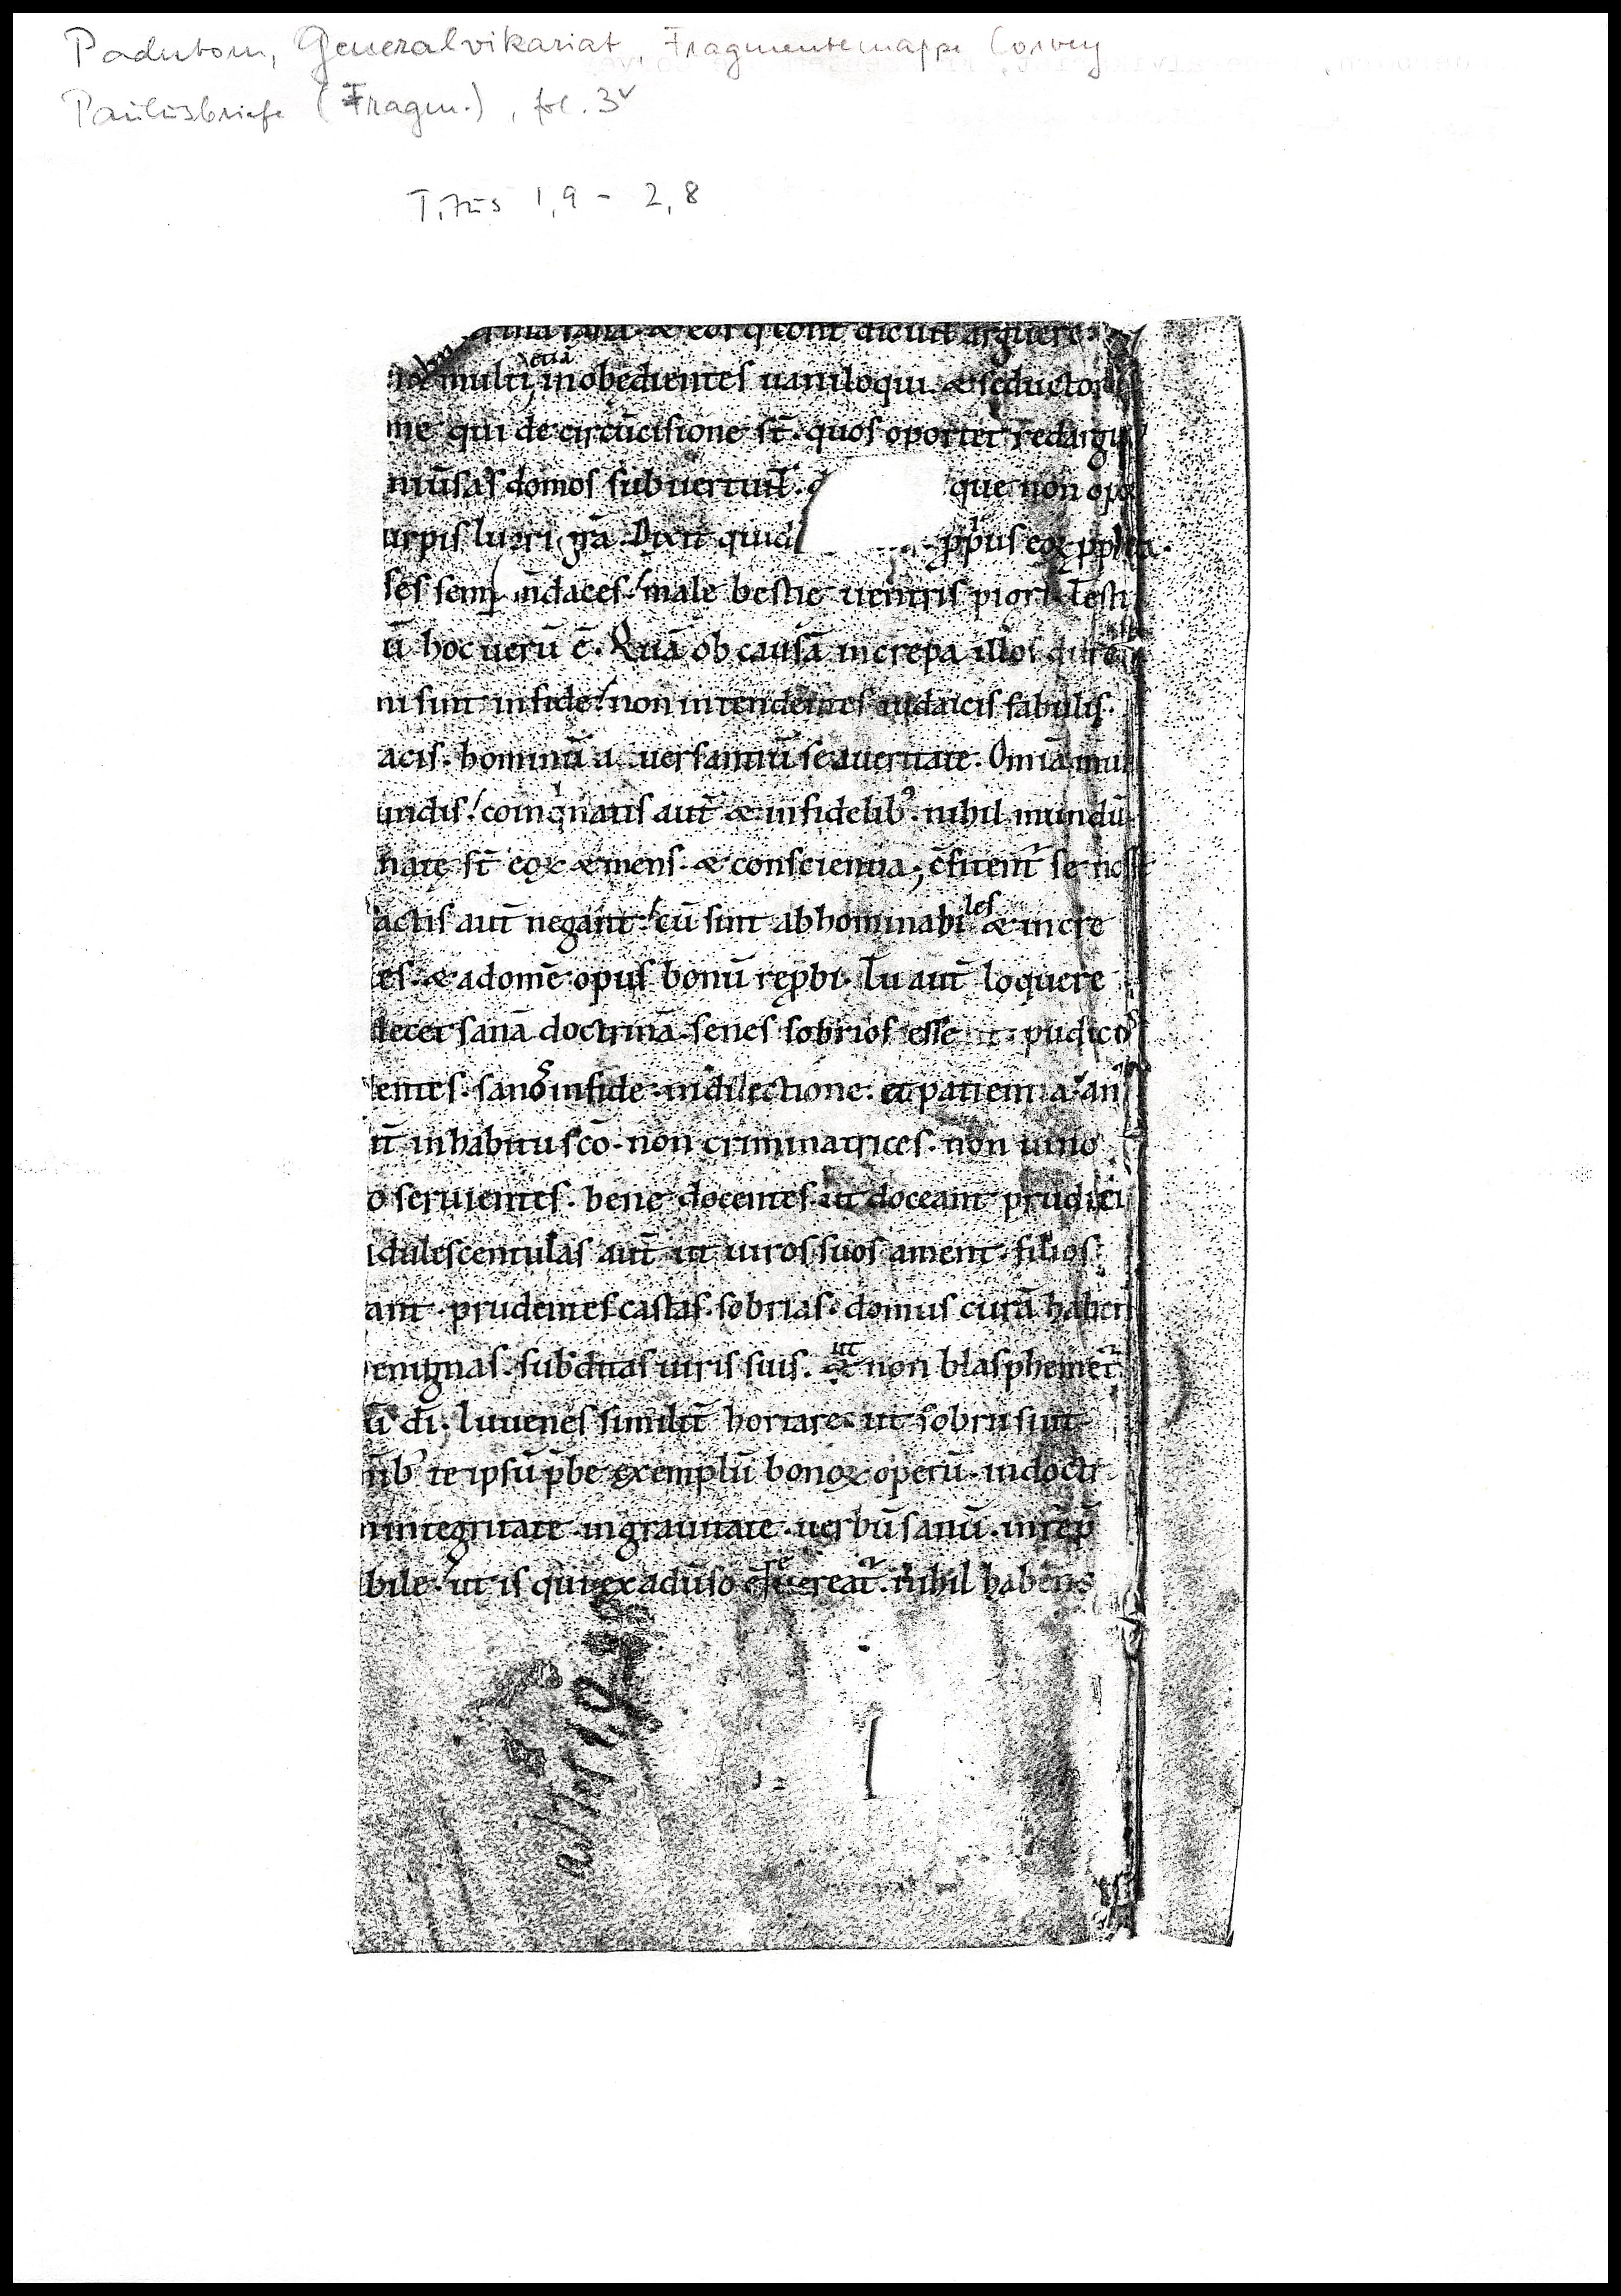 Paderborn, Generalvikariat, Fragmentemappe Corvey
Paulusbriefe (Fragm.), fol. 3v
Titus 1,9 - 2,8
sana. & eos q̄ cont̄ dicunt arguere.
multi &iā inobędientes uaniloqui. & seductores
me qui de circūcisione st̄. quos oportet redargui
niūsas domos subuertunt. que non opor
urpis lucri grā. Dixit quid pp̄us eoꝝ ppheta.
ses semꝑ m̄daces. male bestie uentris pigri. Testi
ū hoc uerū ē. Quā ob causā increpa illos dure
ni sint in fide. non intendentes iudaicis fabulis.
acis. hominū auersantiū se a ueritate. Omnia mun
undis. coinqinatis aut̄ & infidelibꝰ. nihil mundū
nate st̄ eoꝝ & mens. & conscientia; c̄fitent̄ se nosse
actis aut̄ negant. cū sint abhominabiles & incre
es. & ad om̄e opus bonū rep̱bi. Tu aut̄ loquere
decet sanā doctrinā. senes sobrios esse pudicos
entes. sanos in fide. in dilectione. et patientia. an
ū in habitu scō. non criminatrices. non uino
o seruientes. bene docentes. ut doceant prudnti
dulescentulas aut̄ ut uiros suos ament. filios
ant. prudentes castas. sobrias. domus curā haben
enignas. subditas uiris suis. ut non blasphemet᷑
ū dī. Iuuenes similit̄ hortare. ut sobrii sint
ibꝰ te ipsū p̄be exemplū bonoꝝ operū. in doctr
n integritate. in grauitate. uerbū sanū. inrep̄
bile. ut is qui ex adūso ē. nihil habens